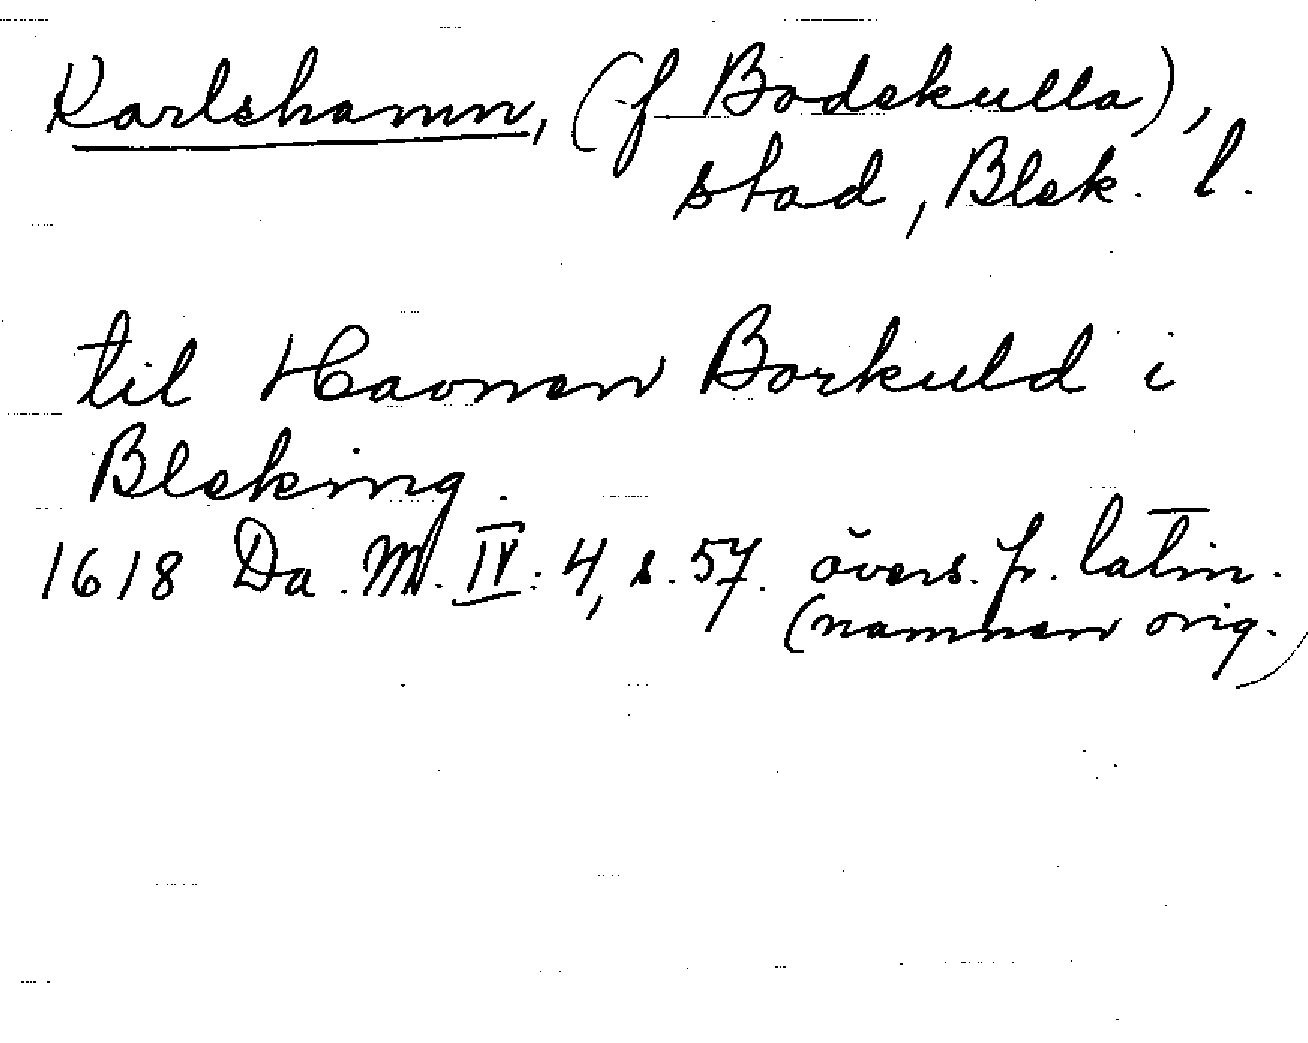 Karlshamn, (f Bodekulla),
stad, Blek. l.
til Haonen Borkuld i
Bleking.
1618 Da. M. IV: 4, s. 57. övers. fr. latin.
(namnen orig.)